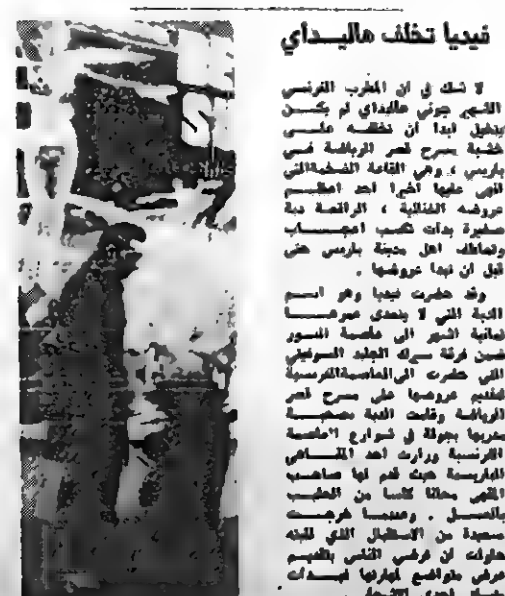 فيديا تخلف هاليـداي
لا شك في ان المطرب الفرنسي
الشهير جوني هاليداي لم يكـــن
يتخيل ابدا أن تخلفـــه علـــى
خشبة مسرح قصر الرياضة فـــي
باريس ، وهي القاعة الضخمةالتي
انهى عليها اخيرا احد اعظــــم
عروضه الغنائية ، الراقصة دبة
صغيرة بدأت تكسب اعجــــاب
وتعاطف اهل مدينة باريس حتى
قبل ان تبدا عروضها .
وقد حضرت فيديا وهو اســـم
الدبة التي لا يتعدى عمرهـــا
ثمانية اشهر الى عاصمة النـــور
ضمن فرقة سيرك الجليد السوفيتي
التي حضرت الى العاصمةالفرنسية
لتقديم عروضها على مسرح قصر
الرياضة وقامت الدبة بصحبـــة
مدربها بجولة في شوارع العاصمة
الفرنسية وزارت احد المقـــاهي
الباريسية حيث قدم لها صاحـب
المقهى مجانا كأسا من الحليـــب
بالعســـل . وعندمـــا خرجـــت
سعيدة من الاستقبال الذي لقيته
حاولت ان ترضي الناس بتقديـــم
عرض متواضع لمهارتها فبـــدأت
احدى الاشجار